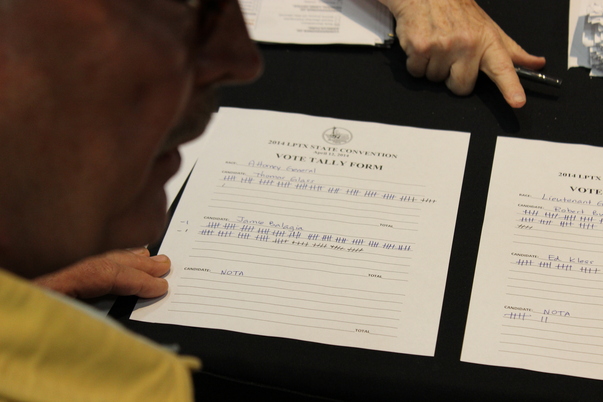 2014 LPTX STATE CONVENTION
April 12, 2014
VOTE TALLY FORM
RACE: Attorney General
CANDIDATE: Thomas Glass
TOTAL
CANDIDATE: Jamie Balagia
TOTAL
CANDIDATE: NOTA
TOTAL
2014 LPTX
VOTE
RACE: Lieutenant
CANDIDATE: Robert
CANDIDATE: Ed Kless
CANDIDATE: NOTA